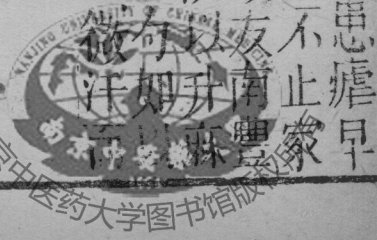 患瘧早
不止家
友南豐
以升麻
句如
微汗而
京中医药大学图书馆版权